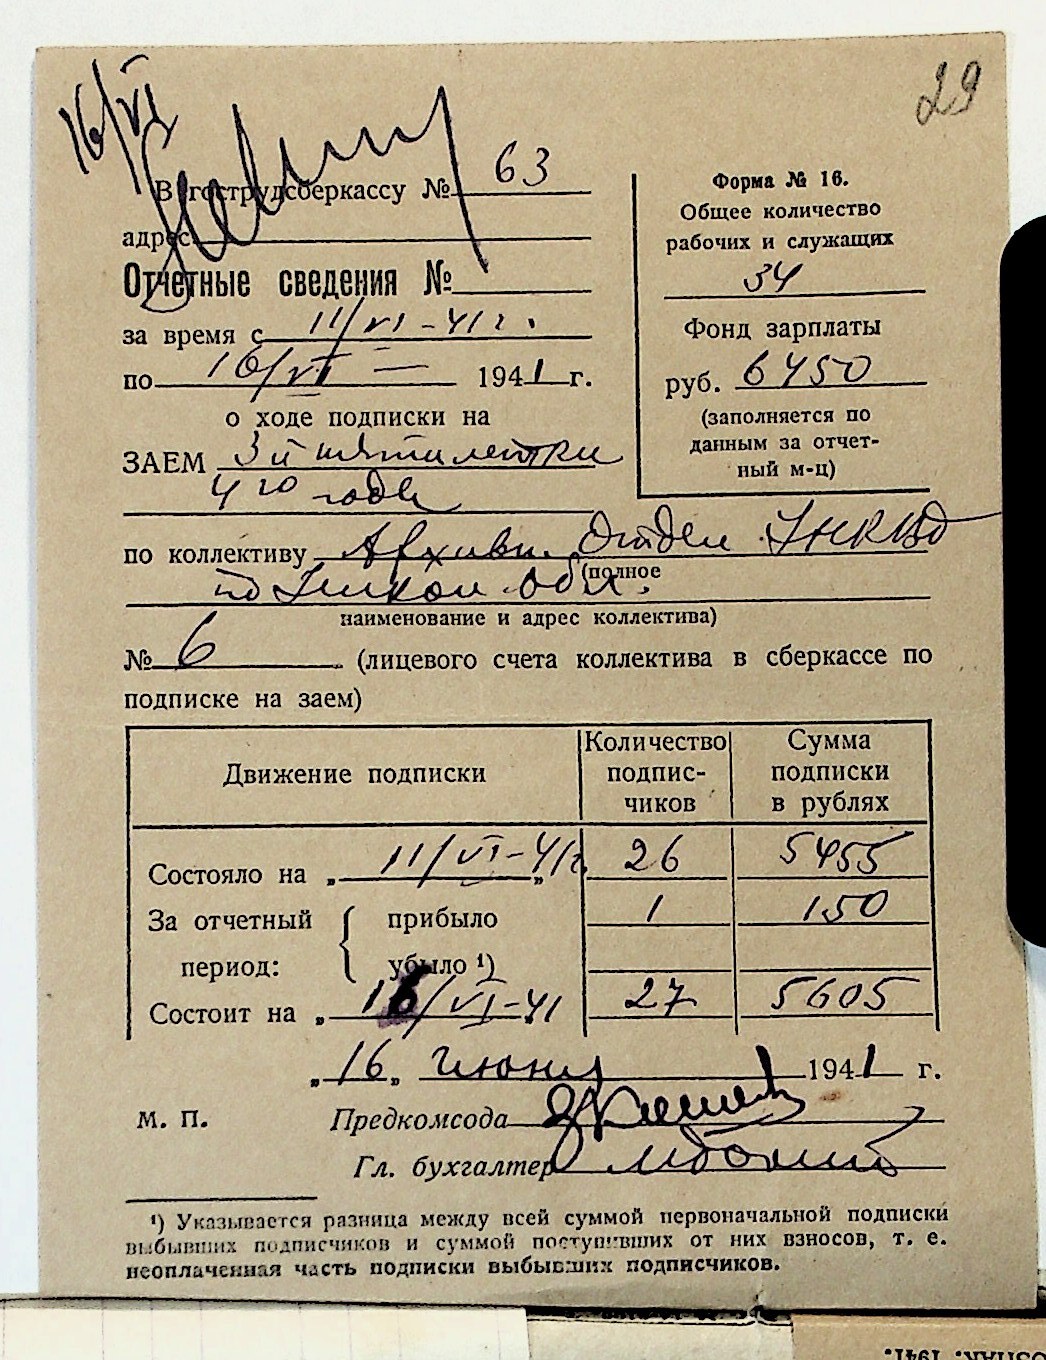 16/VI
29
В гострудсберкассу № 63
адрес
Отчетные сведения №
за время с 11/VI - 41 г.
по 16/VI — 1941 г.
о ходе подписки на
ЗАЕМ 3й пятилетки
4го года
Форма № 16.
Общее количество
рабочих и служащих
34
Фонд зарплаты
руб. 6450
(заполняется по
данным за отчет-
ный м-ц)
по коллективу Архивн. Отдел УНКВД
по обл.
(полное
наименование и адрес коллектива)
№ 6 (лицевого счета коллектива в сберкассе по
подписке на заем)
Движение подписки
Количество
подпис-
чиков
Сумма
подписки
в рублях
Состояло на „ 11/VI-41г. „ 26 5455
За отчетный { прибыло 1 150
период: убыло ¹)
Состоит на „ 16/VI-41 „ 27 5605
„16„ июня 1941 г.
М. П. Предкомсода
Гл. бухгалтер
¹) Указывается разница между всей суммой первоначальной подписки
выбывших подписчиков и суммой поступивших от них взносов, т. е.
неоплаченная часть подписки выбывших подписчиков.